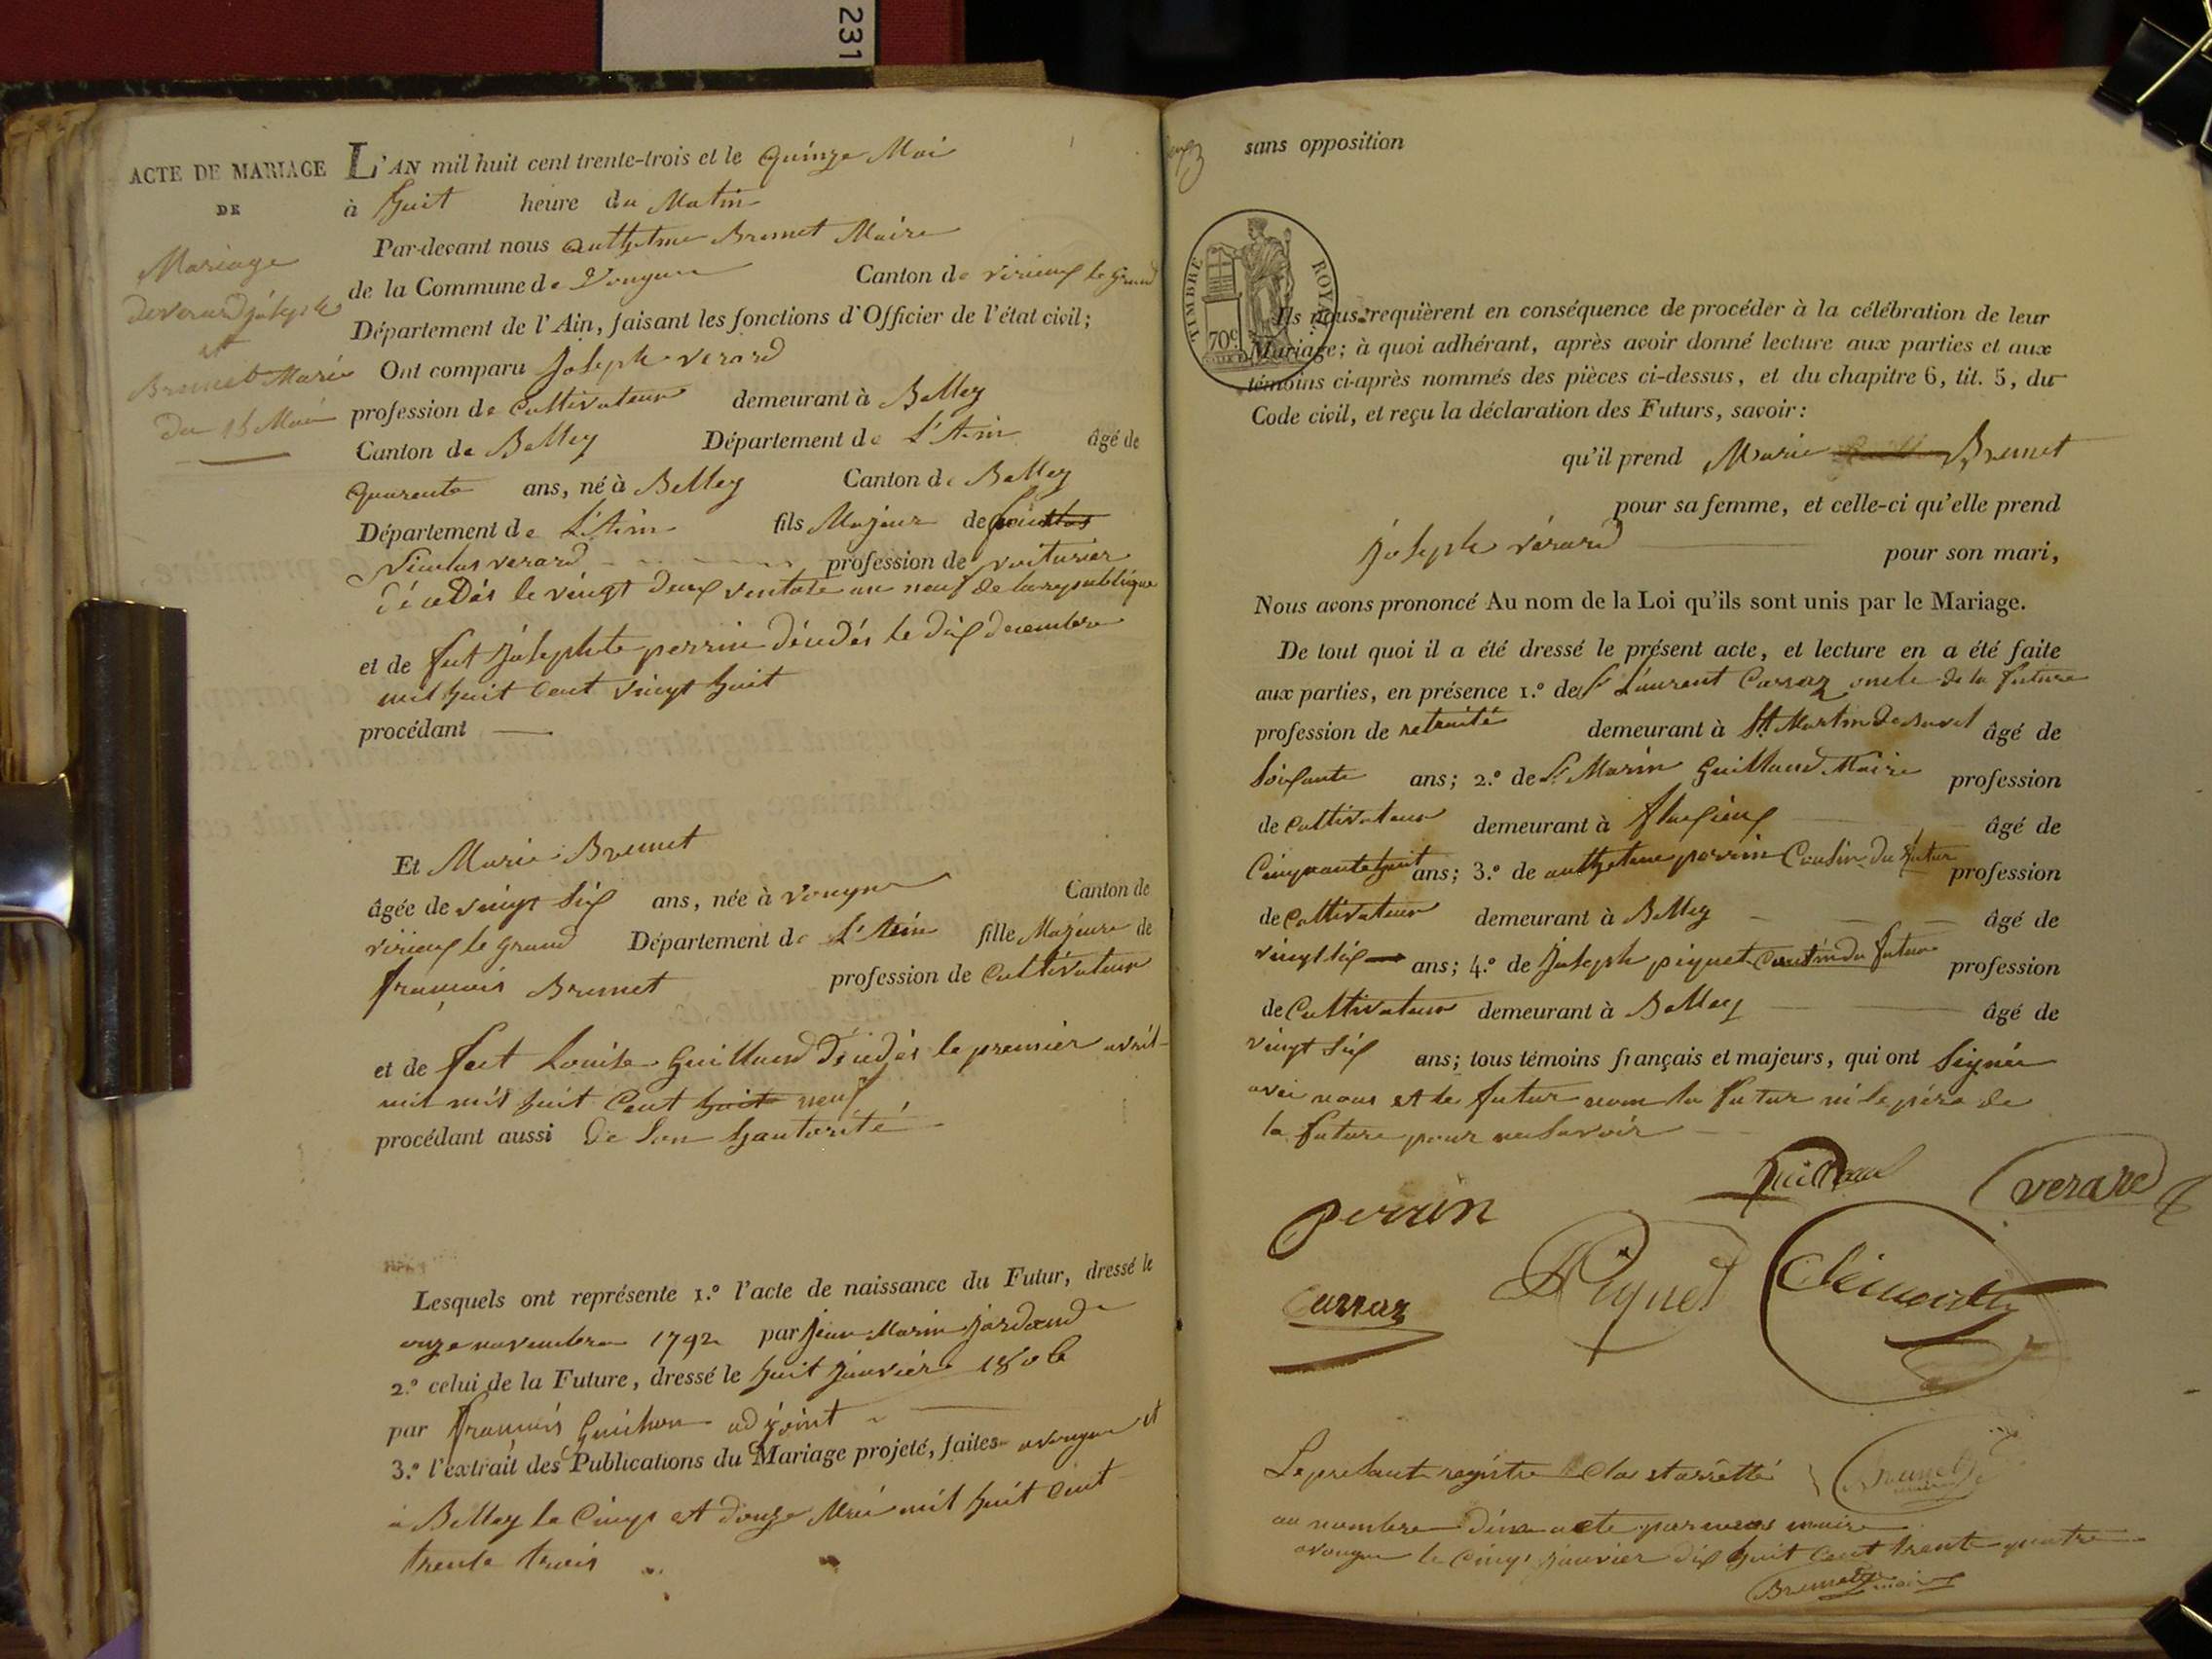 231
ACTE DE MARIAGE
DE
Mariage
de verard joseph
et
Brunet Marie
du 15 Mai
L'AN mil huit cent trente-trois et le quinze Mai
à huit heure du Matin
Par-devant nous anthelme Brunet Maire
de la Commune de Vongne Canton de virieux le grand
Département de l'Ain, faisant les fonctions d'Officier de l'état civil;
Ont comparu Joseph verard
profession de Cultivateur demeurant à Belley
Canton de Belley Département de L'Ain âgé de
quarente ans, né à Belley Canton de Belley
Département de L'Ain fils Majeur de
Nicolas verard profession de voiturier
décédés le vingt deux ventose an neuf de la republique
et de feut josephte perrin décédés le dix decembre
mil huit cent vingt huit
procédant
Et Marie Brunet
âgée de vingt six ans, née à vongne Canton de
virieux le grand Département de L'Ain fille Majeure de
françois Brunet profession de Cultivateur
et de feut Louise Guilland décédés le premier avril
mil mil huit Cent huit neuf
procédant aussi de son hautorité
Lesquels ont représente 1.º l'acte de naissance du Futur, dressé le
onze novembre 1792 par jean Marin jordand
2.º celui de la Future, dressé le huit janvier 1806
par françois Guichon adjoint
3.º l'extrait des Publications du Mariage projeté, faites a vongne et
a Belley le Cinq et douze Mai mil huit Cent
trente trois
sans opposition
TIMBRE ROYAL
70c
Ils nous requièrent en conséquence de procéder à la célébration de leur
Mariage; à quoi adhérant, après avoir donné lecture aux parties et aux
témoins ci-après nommés des pièces ci-dessus, et du chapitre 6, tit. 5, du
Code civil, et reçu la déclaration des Futurs, savoir:
qu'il prend Marie Brunet
pour sa femme, et celle-ci qu'elle prend
joseph vérard pour son mari,
Nous avons prononcé Au nom de la Loi qu'ils sont unis par le Mariage.
De tout quoi il a été dressé le présent acte, et lecture en a été faite
aux parties, en présence 1.º de Sr Laurent Carraz oncle de la future
profession de retraité demeurant à St Martin de bavel âgé de
soixante ans; 2.º de Sr Marin Guilland Maire profession
de Cultivateur demeurant à flaxieux âgé de
Cinquante huit ans; 3.º de anthelme perrin Cousin du futur profession
de Cultivateur demeurant à Belley âgé de
vingt six ans; 4.º de Joseph piquet Cousin du futur profession
de Cultivateur demeurant à Belley âgé de
vingt six ans; tous témoins français et majeurs, qui ont Signée
avec nous et le futur nom la futur ni le père de
la future pour ne savoir
Guilland
verard
perrin
Piquet
Carraz
Le present registre Clos et arretté
Brunet
au nombre d'un acte par nous maire
a vongne le Cinq janvier dix huit Cent trente quatre
Brunet maire